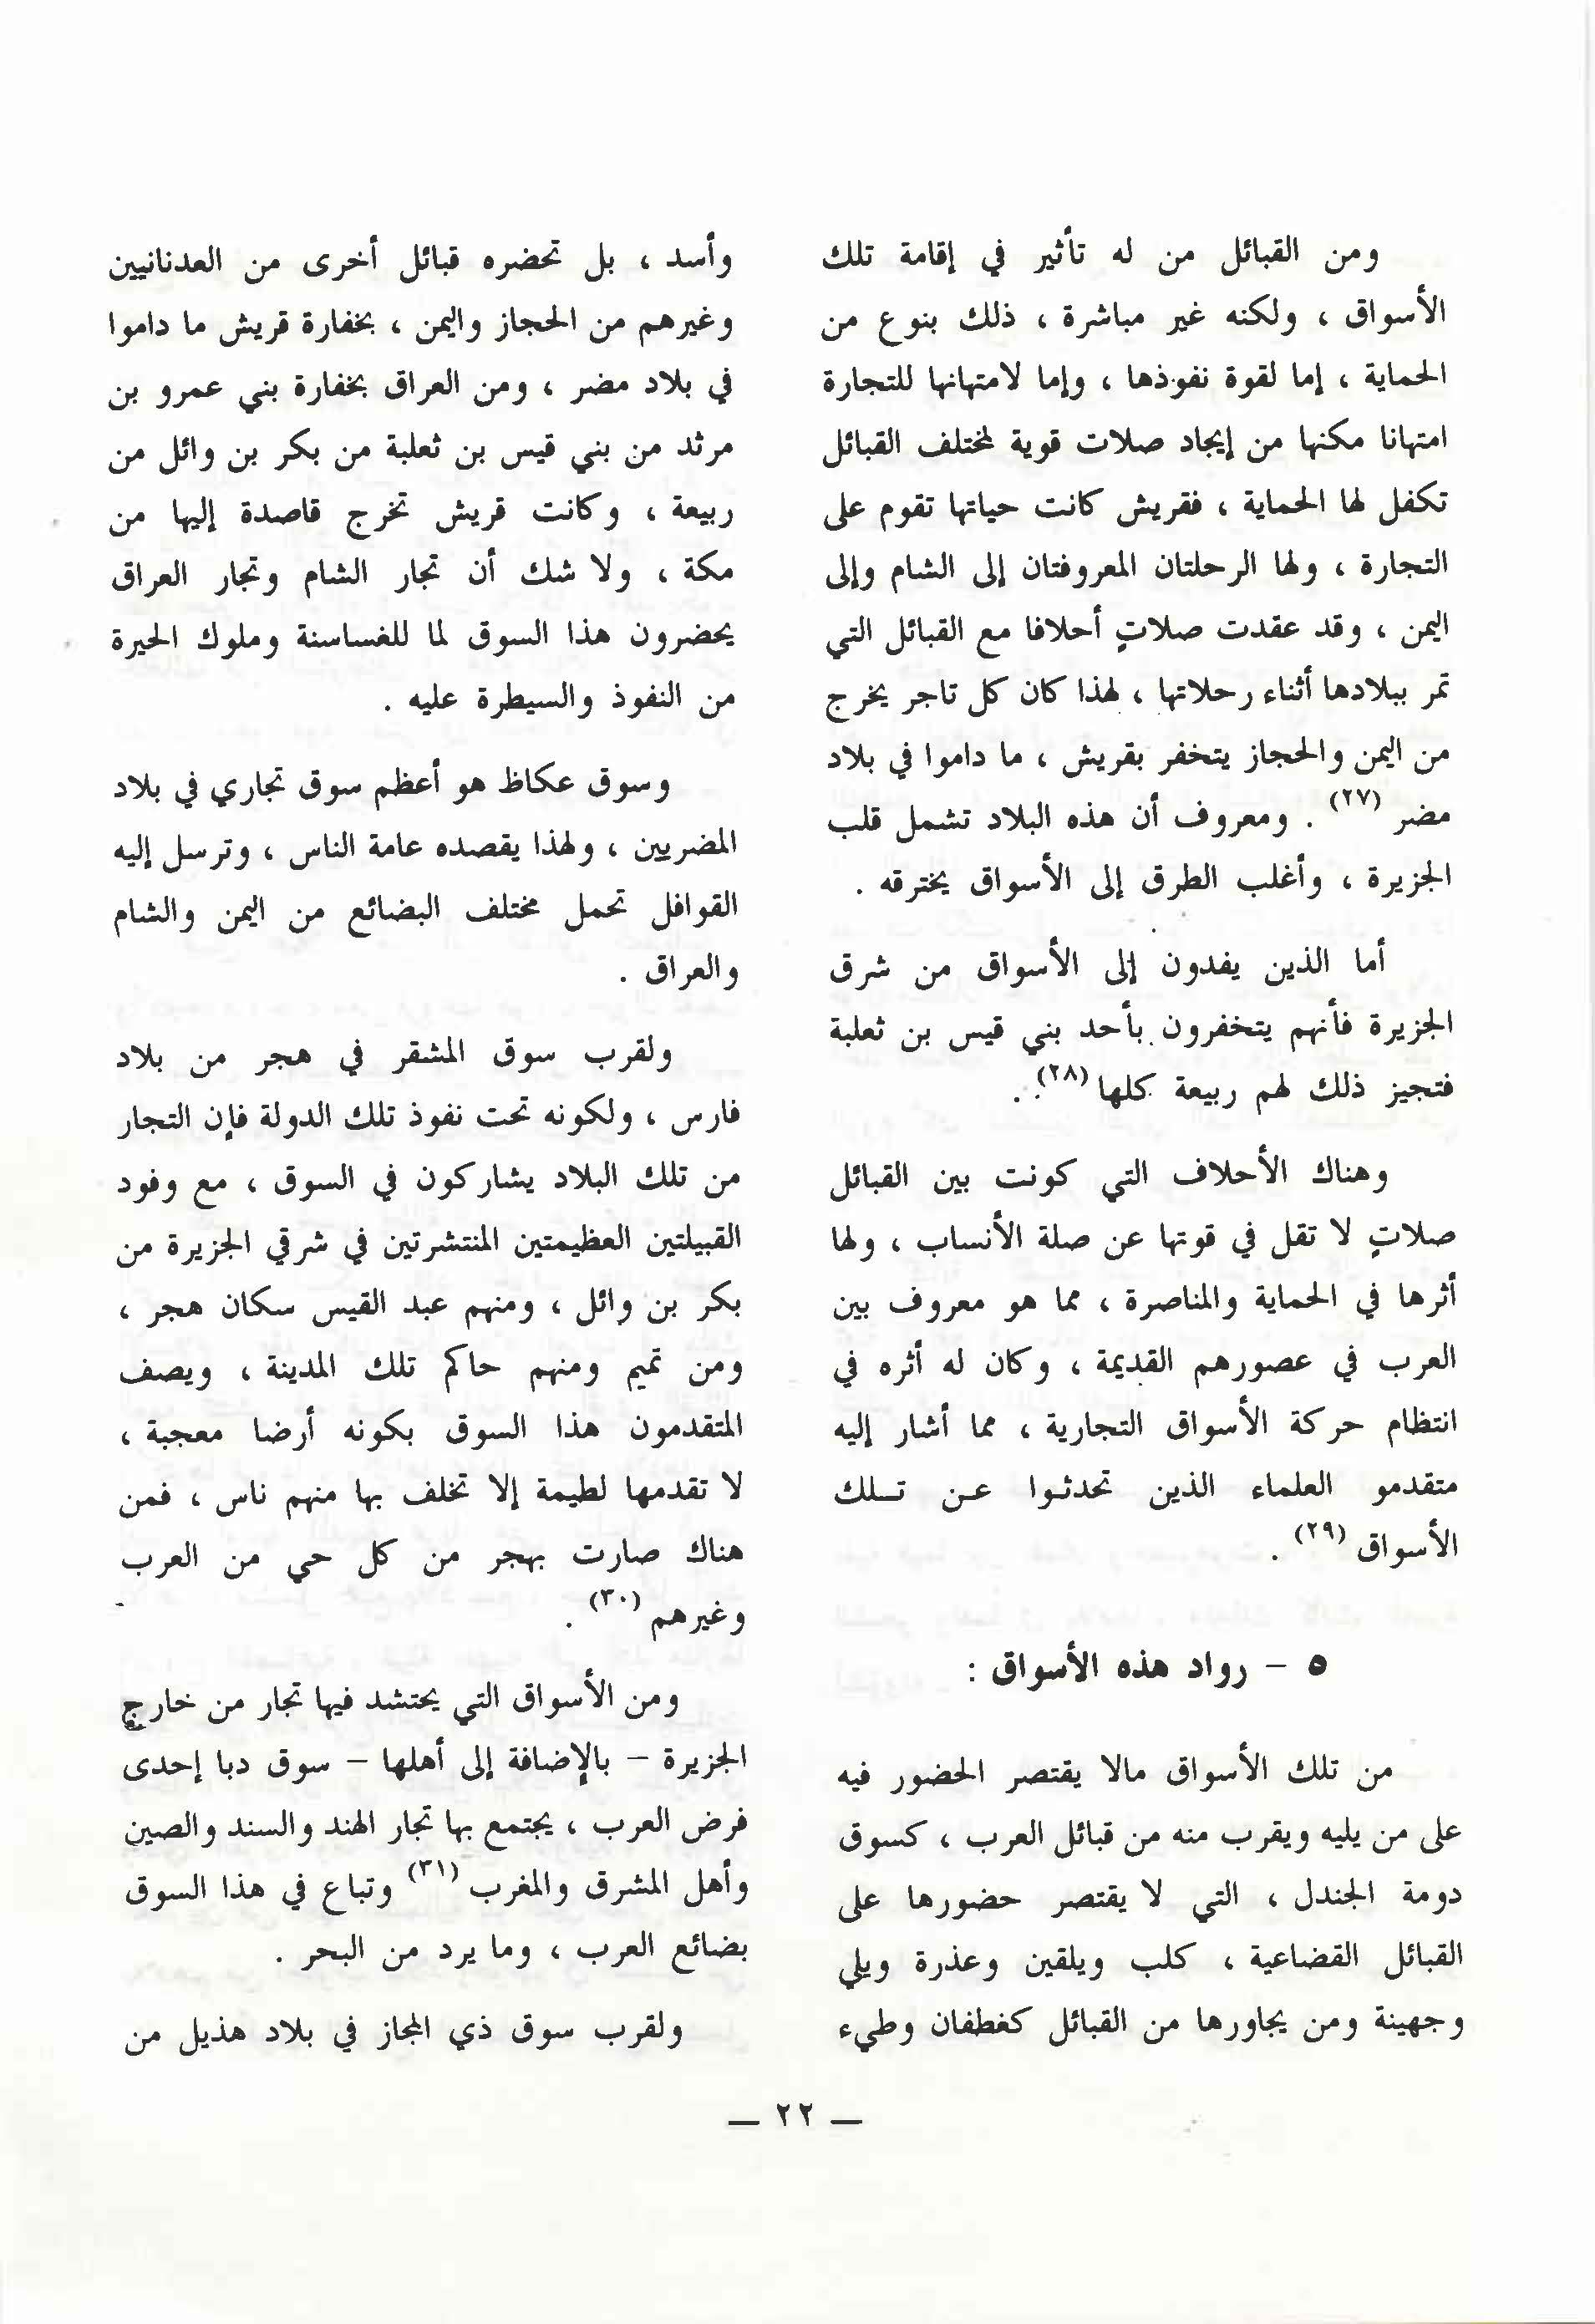 ومن القبائل من له تأثير في إقامة تلك
الأسواق ، ولكنه غير مباشرة ، ذلك بنوع من
الحماية ، إما لقوة نفوذها ، وإما لامتهانها للتجارة
امتهانا مكنها من إيجاد صلات قوية لمختلف القبائل
تكفل لها الحماية ، فقريش كانت حياتها تقوم على
التجارة ، ولها الرحلتان المعروفتان إلى الشام وإلى
اليمن ، وقد عقدت صلاتٍ أحلافا مع القبائل التي
تمر ببلادها أثناء رحلاتها ، لهذا كان كل تاجر يخرج
من اليمن والحجاز يتخفر بقريش ، ما داموا في بلاد
مضر (٢٧) . ومعروف أن هذه البلاد تشمل قلب
الجزيرة ، وأغلب الطرق إلى الأسواق يخترقه .
أما الذين يفدون إلى الأسواق من شرق
الجزيرة فأنهم يتخفرون بأحد بني قيس بن ثعلبة
فتجيز ذلك لهم ربيعة كلها (٢٨) .
وهناك الأحلاف التي كونت بين القبائل
صلاتٍ لا تقل في قوتها عن صلة الأنساب ، ولها
أثرها في الحماية والمناصرة ، مما هو معروف بين
العرب في عصورهم القديمة ، وكان له أثره في
انتظام حركة الأسواق التجارية ، مما أشار إليه
متقدمو العلماء الذين تحدثوا عن تلك
الأسواق (٢٩) .
٥ - رواد هذه الأسواق :
من تلك الأسواق مالا يقتصر الحضور فيه
على من يليه ويقرب منه من قبائل العرب ، كسوق
دومة الجندل ، التي لا يقتصر حضورها على
القبائل القضاعية ، كلب وبلقين وعذرة وبلي
وجهينة ومن يجاورها من القبائل كغطفان وطيء
وأسد ، بل تحضره قبائل أخرى من العدنانيين
وغيرهم من الحجاز واليمن ، بخفارة قريش ما داموا
في بلاد مضر ، ومن العراق بخفارة بني عمرو بن
مرثد من بني قيس بن ثعلبة من بكر بن وائل من
ربيعة ، وكانت قريش تخرج قاصدة إليها من
مكة ، ولا شك أن تجار الشام وتجار العراق
يحضرون هذا السوق لما للغساسنة وملوك الحيرة
من النفوذ والسيطرة عليه .
وسوق عكاظ هو أعظم سوق تجاري في بلاد
المضريين ، ولهذا يقصده عامة الناس ، وترسل إليه
القوافل تحمل مختلف البضائع من اليمن والشام
والعراق .
ولقرب سوق المشقر في هجر من بلاد
فارس ، ولكونه تحت نفوذ تلك الدولة فإن التجار
من تلك البلاد يشاركون في السوق ، مع وفود
القبيلتين العظيمتين المنتشرتين في شرقي الجزيرة من
بكر بن وائل ، ومنهم عبد القيس سكان هجر ،
ومن تميم ومنهم حاكم تلك المدينة ، ويصف
المتقدمون هذا السوق بكونه أرضا معجبة ،
لا تقدمها لطيمة إلا تخلف بها منهم ناس ، فمن
هناك صارت بهجر من كل حي من العرب
وغيرهم (٣٠) .
ومن الأسواق التي يحتشد فيها تجار من خارج
الجزيرة – بالإضافة إلى أهلها – سوق دبا إحدى
فرض العرب ، يجتمع بها تجار الهند والسند والصين
وأهل المشرق والمغرب (٣١) وتباع في هذا السوق
بضائع العرب ، وما يرد من البحر .
ولقرب سوق ذي المجاز في بلاد هذيل من
— ٢٢ —